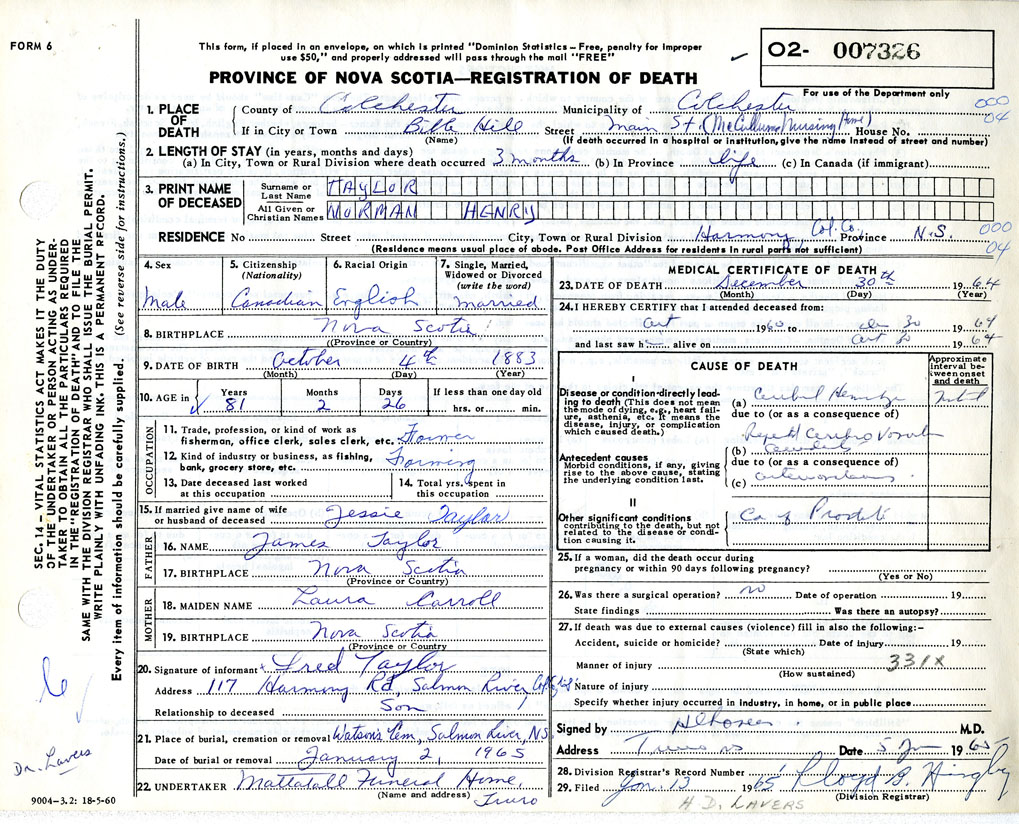 FORM 6
This form, if placed in an envelope, on which is printed "Dominion Statistics – Free, penalty for improper
use $50," and properly addressed will pass through the mail "FREE"
PROVINCE OF NOVA SCOTIA—REGISTRATION OF DEATH
O2- 007326
For use of the Department only
000
04
1. PLACE OF DEATH
County of Colchester Municipality of Colchester
If in City or Town Bible Hill Street Main St (McCullums Nursing Home) House No.
(Name) (If death occurred in a hospital or institution, give the name instead of street and number)
2. LENGTH OF STAY (in years, months and days)
(a) In City, Town or Rural Division where death occurred 3 months (b) In Province life (c) In Canada (if immigrant)
3. PRINT NAME OF DECEASED
Surname or Last Name TAYLOR
All Given or Christian Names NORMAN HENRY
RESIDENCE No Street City, Town or Rural Division Harmony Col. Co. Province N.S.
000
04
(Residence means usual place of abode. Post Office Address for residents in rural parts not sufficient)
4. Sex
Male
5. Citizenship (Nationality)
Canadian
6. Racial Origin
English
7. Single, Married, Widowed or Divorced (write the word)
Married
8. BIRTHPLACE Nova Scotia
(Province or Country)
9. DATE OF BIRTH October 4th 1883
(Month) (Day) (Year)
10. AGE in Years Months Days If less than one day old
81 2 26 hrs. or min.
OCCUPATION
11. Trade, profession, or kind of work as
fisherman, office clerk, sales clerk, etc. Farmer
12. Kind of industry or business, as fishing,
bank, grocery store, etc. Farming
13. Date deceased last worked at this occupation
14. Total yrs. spent in this occupation
15. If married give name of wife
or husband of deceased Jessie Taylor
FATHER
16. NAME James Taylor
17. BIRTHPLACE Nova Scotia
(Province or Country)
MOTHER
18. MAIDEN NAME Laura Carroll
19. BIRTHPLACE Nova Scotia
(Province or Country)
20. Signature of informant Fred Taylor
Address 117 Harmony Rd, Salmon River
Relationship to deceased Son
21. Place of burial, cremation or removal Watson's Cem, Salmon River, NS
Date of burial or removal January 2, 1965
22. UNDERTAKER Mattatall Funeral Home,
(Name and address) Truro
9004–3.2: 18-5-60
MEDICAL CERTIFICATE OF DEATH
23. DATE OF DEATH December 30th 1964
(Month) (Day) (Year)
24. I HEREBY CERTIFY that I attended deceased from:
1960 to 30 1964
and last saw h alive on 1964
CAUSE OF DEATH
Approximate interval between onset and death
I
Disease or condition directly leading to death (This does not mean the mode of dying, e.g., heart failure, asthenia, etc. It means the disease, injury, or complication which caused death.)
(a)
due to (or as a consequence of)
Antecedent causes
Morbid conditions, if any, giving rise to the above cause, stating the underlying condition last.
(b)
due to (or as a consequence of)
(c)
II
Other significant conditions
contributing to the death, but not related to the disease or condition causing it.
Ca of
25. If a woman, did the death occur during
pregnancy or within 90 days following pregnancy?
(Yes or No)
26. Was there a surgical operation? no Date of operation 19
State findings Was there an autopsy?
27. If death was due to external causes (violence) fill in also the following:–
Accident, suicide or homicide? Date of injury 19
(State which)
Manner of injury 331X
(How sustained)
Nature of injury
Specify whether injury occurred in industry, in home, or in public place
Signed by M.D.
Address Truro NS Date 5 Jan 1965
28. Division Registrar's Record Number
29. Filed Jan 13 1965 Lloyd B.
(Division Registrar)
H D. LAVERS
SEC. 14 – VITAL STATISTICS ACT MAKES IT THE DUTY
OF THE UNDERTAKER OR PERSON ACTING AS UNDER-
TAKER TO OBTAIN ALL THE PARTICULARS REQUIRED
IN THE "REGISTRATION OF DEATH" AND TO FILE THE
SAME WITH THE DIVISION REGISTRAR WHO SHALL ISSUE THE BURIAL PERMIT.
WRITE PLAINLY WITH UNFADING INK. THIS IS A PERMANENT RECORD.
Every item of information should be carefully supplied. (See reverse side for instructions.)
Dr. Lavers